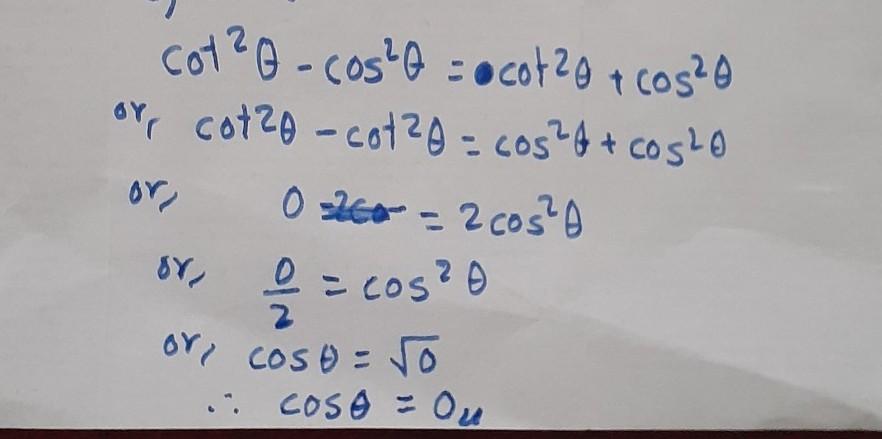 cot²θ - cos²θ = cot²θ + cos²θ
or, cot²θ - cot²θ = cos²θ + cos²θ
or, 0 = 2cos²θ
or, 0/2 = cos²θ
or, cosθ = √0
∴ cosθ = 0